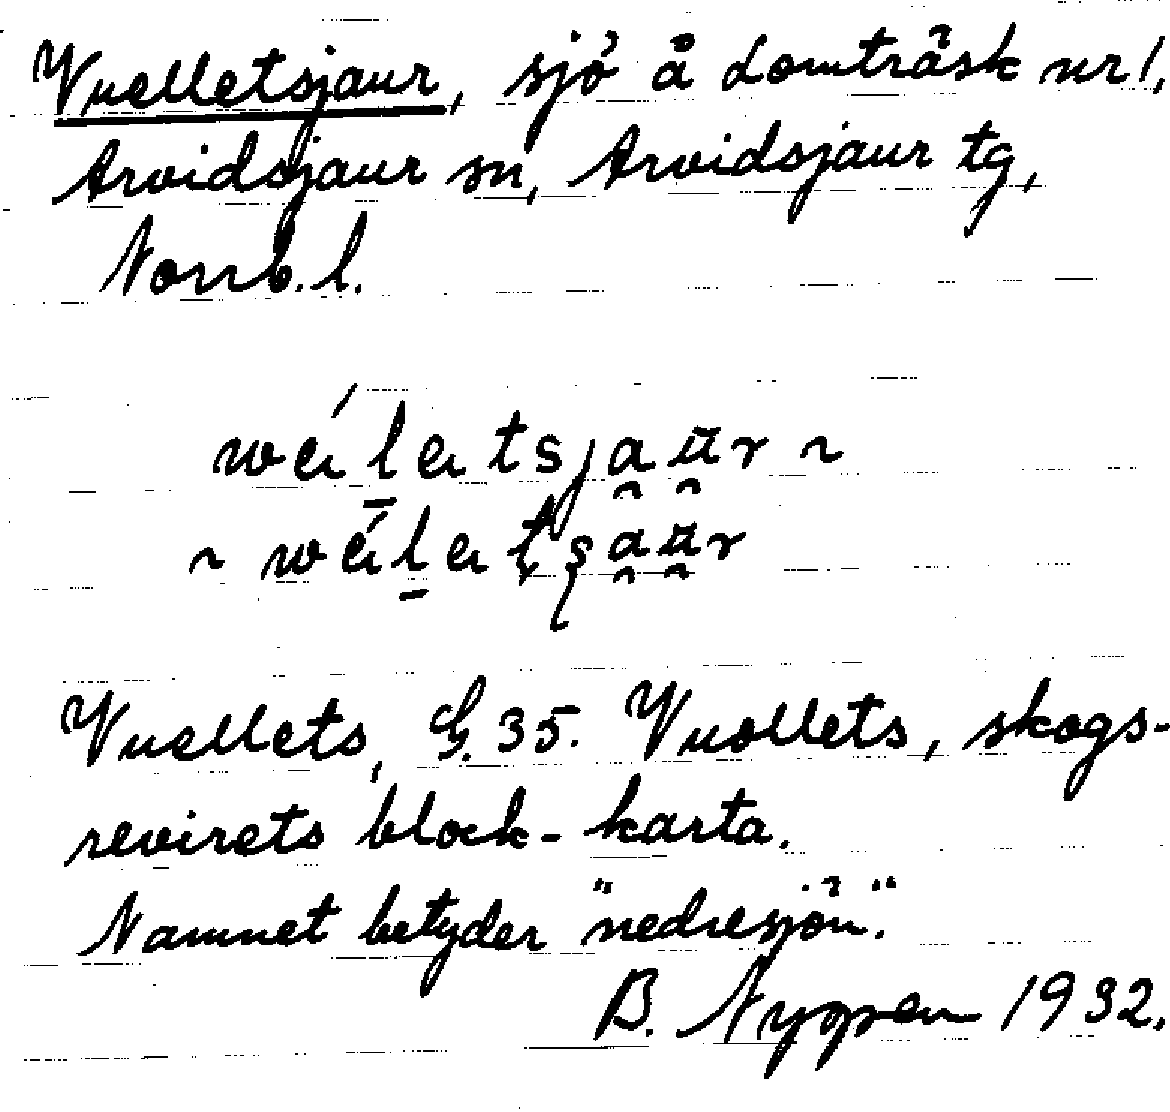 Vuelletsjaur, sjö å Lomträsk nr 1,
Arvidsjaur sn, Arvidsjaur tg,
Norrb. l.
Vuellets, G. 35. Vuollets, skogs-
revirets block-karta.
Namnet betyder "nedresjön".
B. Nygren 1932.